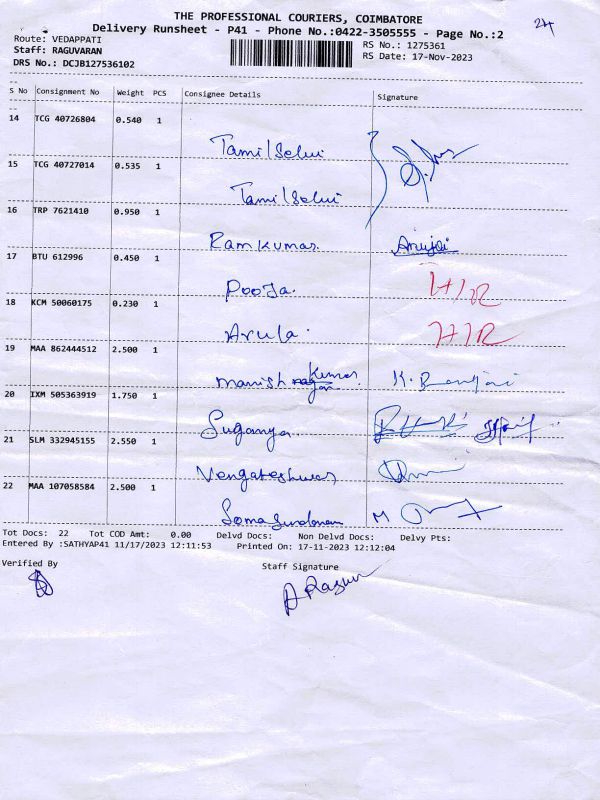 THE PROFESSIONAL COURIERS, COIMBATORE
24
Delivery Runsheet - P41 - Phone No.:0422-3505555 - Page No.:2
Route: VEDAPPATI
RS No.: 1275361
Staff: RAGUVARAN
RS Date: 17-Nov-2023
DRS No.: DCJB127536102
S No Consignment No Weight PCS Consignee Details Signature
14 TCG 40726804 0.540 1
Tamilselvi
15 TCG 40727014 0.535 1
Tamilselvi
16 TRP 7621410 0.950 1
Ramkumar
17 BTU 612996 0.450 1
Pooja. H/R
18 KCM 50060175 0.230 1
Arula. H/R
19 MAA 862444512 2.500 1
manish kumar
20 IXM 505363919 1.750 1
Suganya
21 SLM 332945155 2.550 1
Vengateshwar
22 MAA 107058584 2.500 1
Somasundaram M
Tot Docs: 22 Tot COD Amt: 0.00 Delvd Docs: Non Delvd Docs: Delvy Pts:
Entered By :SATHYAP41 11/17/2023 12:11:53 Printed On: 17-11-2023 12:12:04
Verified By Staff Signature